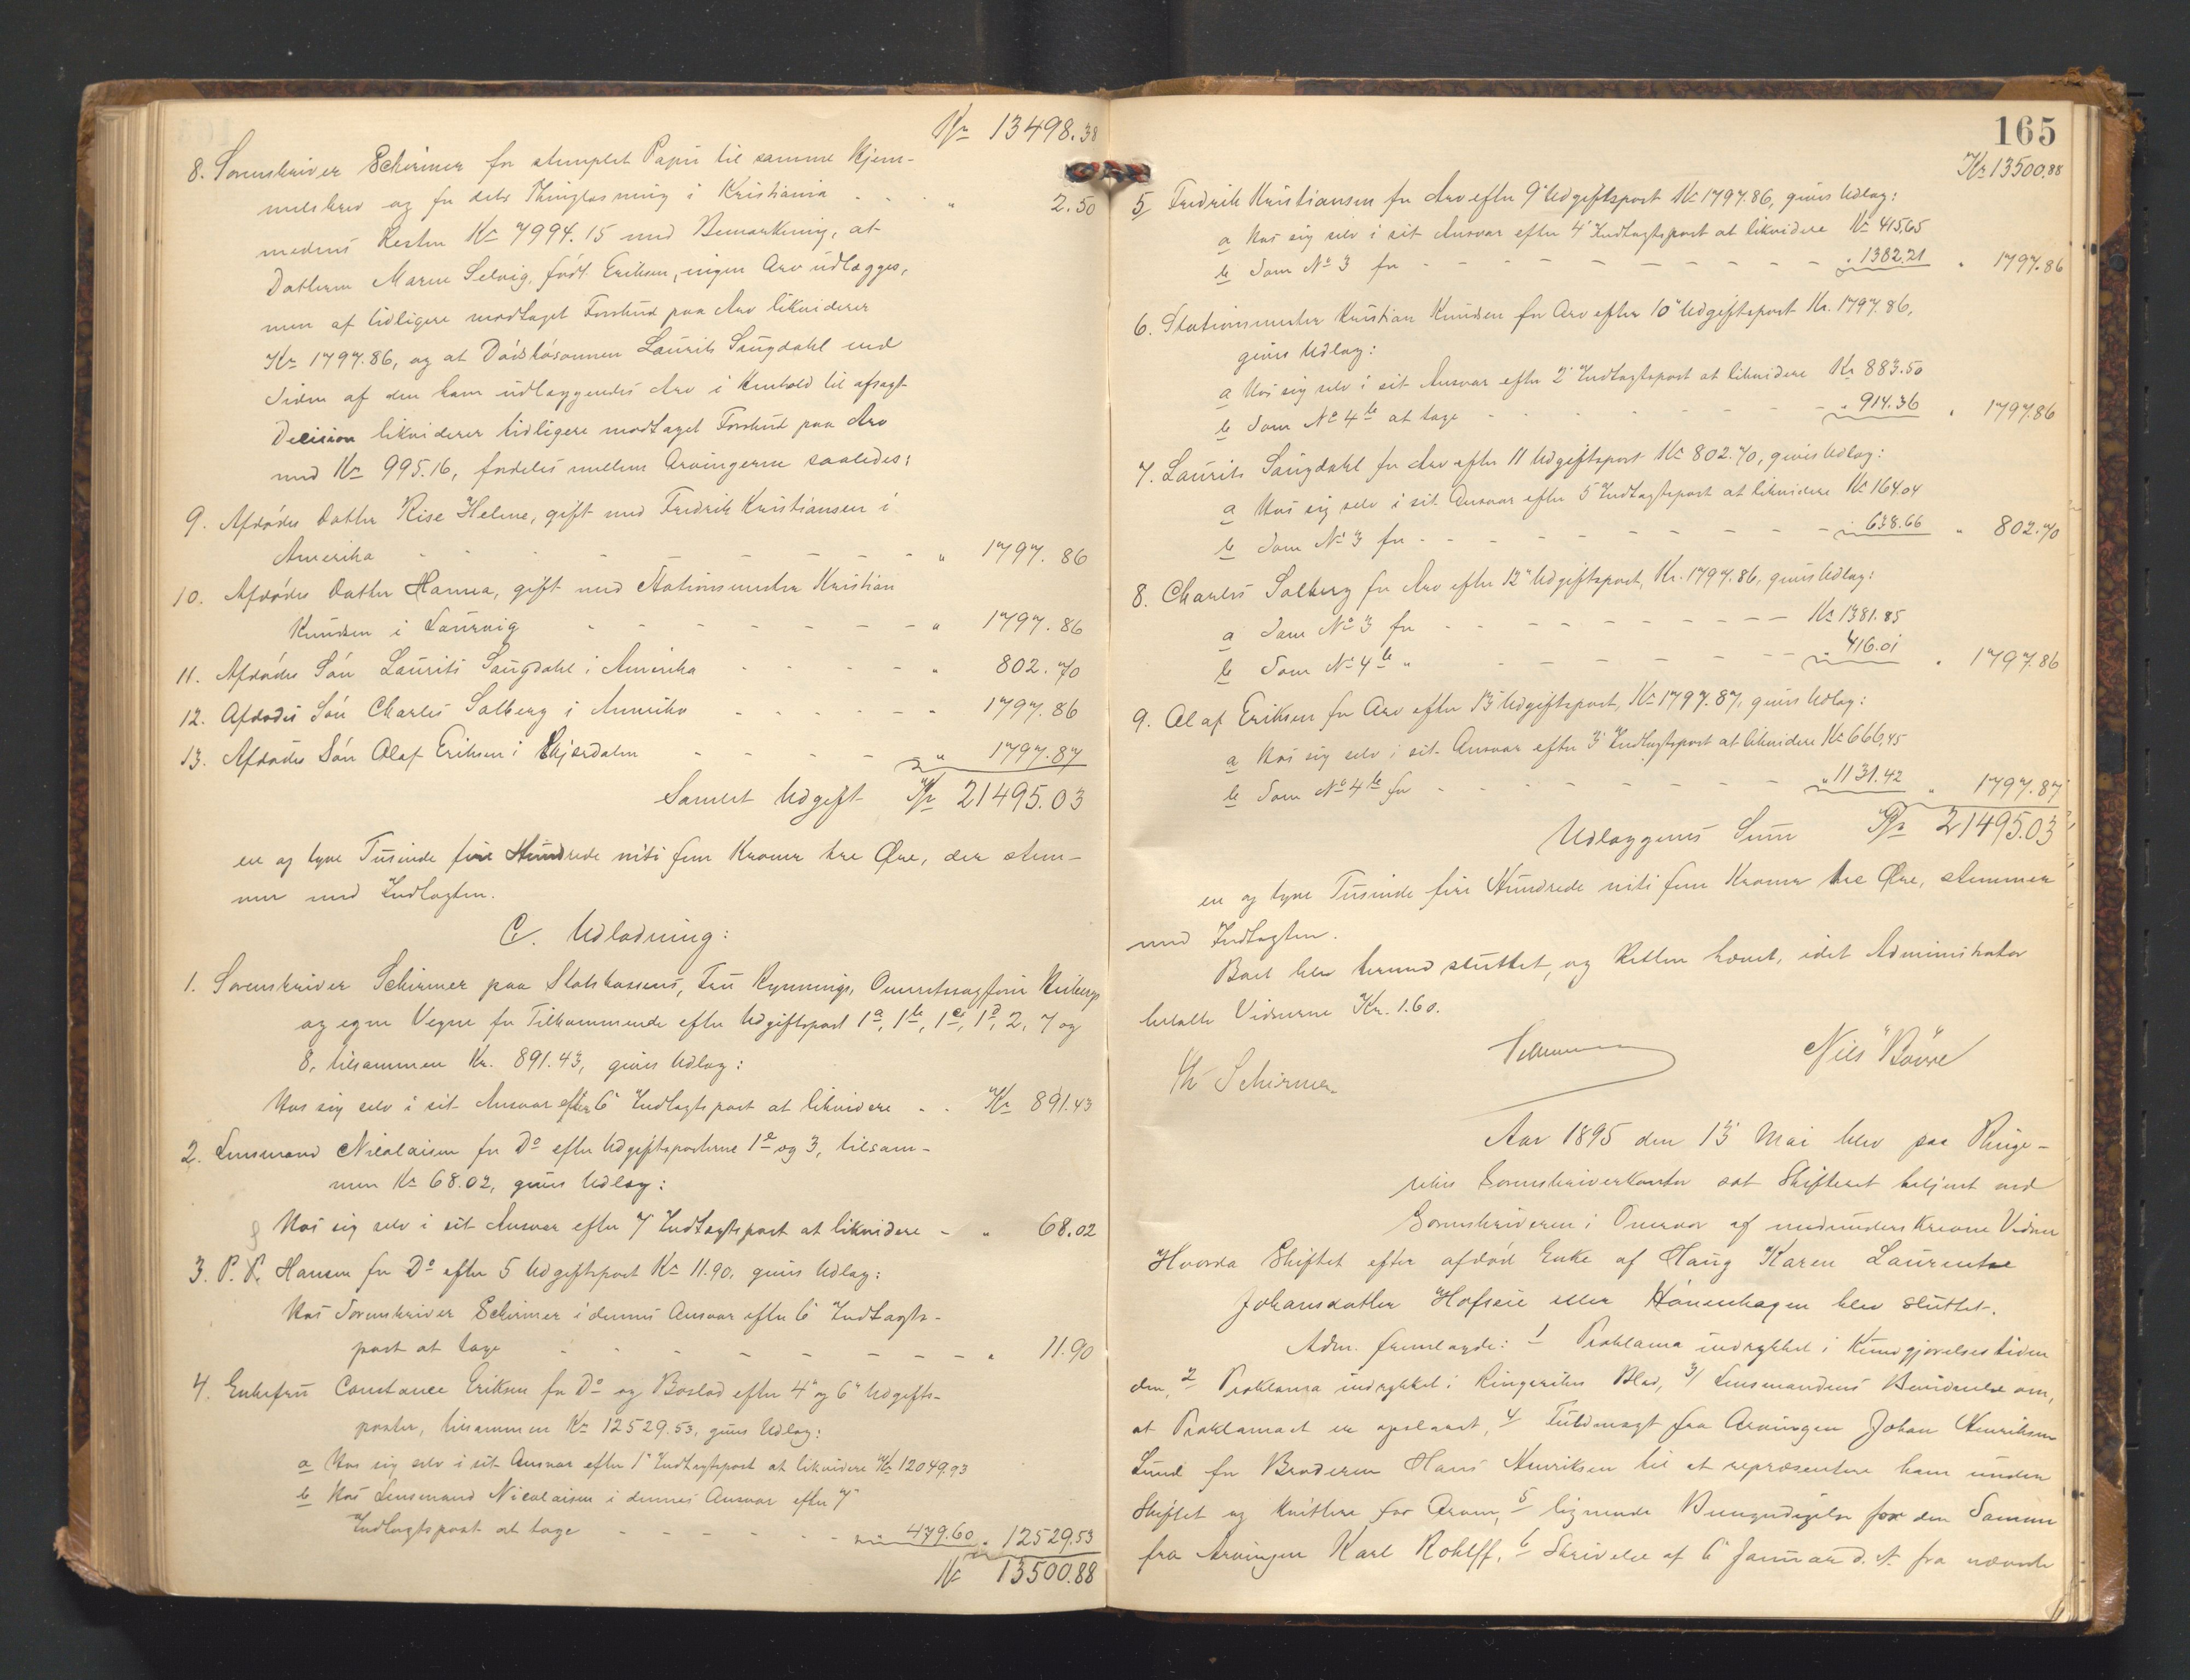 Kr 13498.38
8. Sorenskriver Schirmer for stemplet Papir til samme Hjem-
melsbrev og for dets Thinglæsning i Kristiania - - - " 2.50
medens Resten Kr 7994.15 med Bemærkning, at
Datteren Maren Selvig, født Eriksen, ingen Arv udlægges,
men af tidligere modtaget Forskud paa Arv likviderer
Kr 1797.86, og at Laurits Saugdahl ved
Siden af den ham udlæggendes Arv i Henhold til afsagt
Decision likviderer tidligere modtaget Forskud paa Arv
med Kr 995.16, fordeles mellem Arvingerne saaledes:
9. Afdødes Datter Rise Helene, gift med Fredrik Kristiansen i
Amerika - - - - - " 1797.86
10. Afdødes Datter Hanna, gift med Stationsmester Kristian
Knudsen i Laurvig - - - - - " 1797.86
11. Afdødes Søn Laurits Saugdahl i Amerika - - - - " 802.70
12. Afdødes Søn Charles Solberg i Amerika - - - - " 1797.86
13. Afdødes Søn Olaf Eriksen i Skjærdalen - - - - " 1797.87
Samlet Udgift Kr 21495.03
en og tyve Tusinde fire Hundrede niti fem Kroner tre Øre, der stem-
mer med Indtægten.
C. Udlodning:
1. Sorenskriver Schirmer paa Statskassens, Fru Rynnings, Overretssagfører
og egne Vegne for Tilkommende efter Udgiftspost 1a, 1b, 1c, 1d, 2, 7 og
8, tilsammen Kr. 891.43, gives Udlæg:
Hos sig selv i sit Ansvar efter 6" Indtægtspost at likvidere - - Kr 891.43
2. Lensmand Nicolaisen for Do efter Udgiftsposterne 1e og 3, tilsam-
men Kr 68.02, gives Udlæg:
Hos sig selv i sit Ansvar efter 7" Indtægtspost at likvidere - " 68.02
3. P. P. Hansen for Do efter 5 Udgiftspost Kr 11.90, gives Udlæg:
Hos Sorenskriver Schirmer i dennes Ansvar efter 6" Indtægts-
post at tage - - - - - - " 11.90
4. Enkefru Constance Eriksen for Do og Boslod efter 4" og 6" Udgifts-
poster, tilsammen Kr 12529.53, gives Udlæg:
a Hos sig selv i sit Ansvar efter 1" Indtægtspost at likvidere Kr 12049.93
b Hos Lensmand Nicolaisen i dennes Ansvar efter 7"
Indtægtspost at tage - - - - - " 479.60 " 12529.53
Kr 13500.88
165
Kr 13500.88
5 Fredrik Kristiansen for Arv efter 9" Udgiftspost Kr 1797.86, gives Udlæg:
a Hos sig selv i sit Ansvar efter 4" Indtægtspost at likvidere Kr 415.65
b Som No 3 for - - - - - - " 1382.21 " 1797.86
6. Stationsmester Kristian Knudsen for Arv efter 10" Udgiftspost Kr. 1797.86,
gives Udlæg:
a Hos sig selv i sit Ansvar efter 2" Indtægtspost at likvidere Kr 883.50
b Som No 4b at tage - - - - - " 914.36 " 1797.86
7. Laurits Saugdahl for Arv efter 11 Udgiftspost Kr 802.70, gives Udlæg:
a Hos sig selv i sit Ansvar efter 5" Indtægtspost at likvidere Kr 164.04
b Som No 3 for - - - - - - " 638.66 " 802.70
8. Charles Solberg for Arv efter 12" Udgiftspost, Kr. 1797.86, gives Udlæg:
a Som No 3 for - - - - - - Kr 1381.85
b Som No 4b " - - - - - " 416.01 " 1797.86
9. Olaf Eriksen for Arv efter 13" Udgiftspost, Kr 1797.87, gives Udlæg:
a Hos sig selv i sit Ansvar efter 3" Indtægtspost at likvidere Kr 666.45
b Som No 4b for - - - - - - " 1131.42 " 1797.87
Udlæggenes Sum Kr 21495.03
en og tyve Tusinde fire Hundrede niti fem Kroner tre Øre, stemmer
med Indtægten.
Boet blev hermed sluttet, og Retten hævet, idet Administrator
betalte Vidnerne Kr. 1.60.
Th Schirmer Nils Bøvre
Aar 1895 den 13" Mai blev paa Ringe-
rikes Sorenskriverkontor sat Skifteret betjent ved
Sorenskriveren i Overvær af medunderskrevne Vidner
Hvorda Skiftet efter afdød Enke af Haug Karen Laurentse
Johansdatter Hofseie eller Hønenhagen blev sluttet.
Adm. fremlagde: 1 Proklama indrykket i Kundgjørelsestiden
den, 2 Proklama indrykket i Ringerikes Blad, 3/ Lensmandens Bevidnelse om,
at Proklamaet er opslaaet, 4/ Fuldmagt fra Arvingen Johan Henriksen
Lund for Broderen Hans Henriksen til at repræsentere ham under
Skiftet og kvittere for Arven, 5 lignende Bemyndigelse for den Samme
fra Arvingen Karl Rohlff, 6 Skrivelse af 6" Januar d. A. fra nævnte